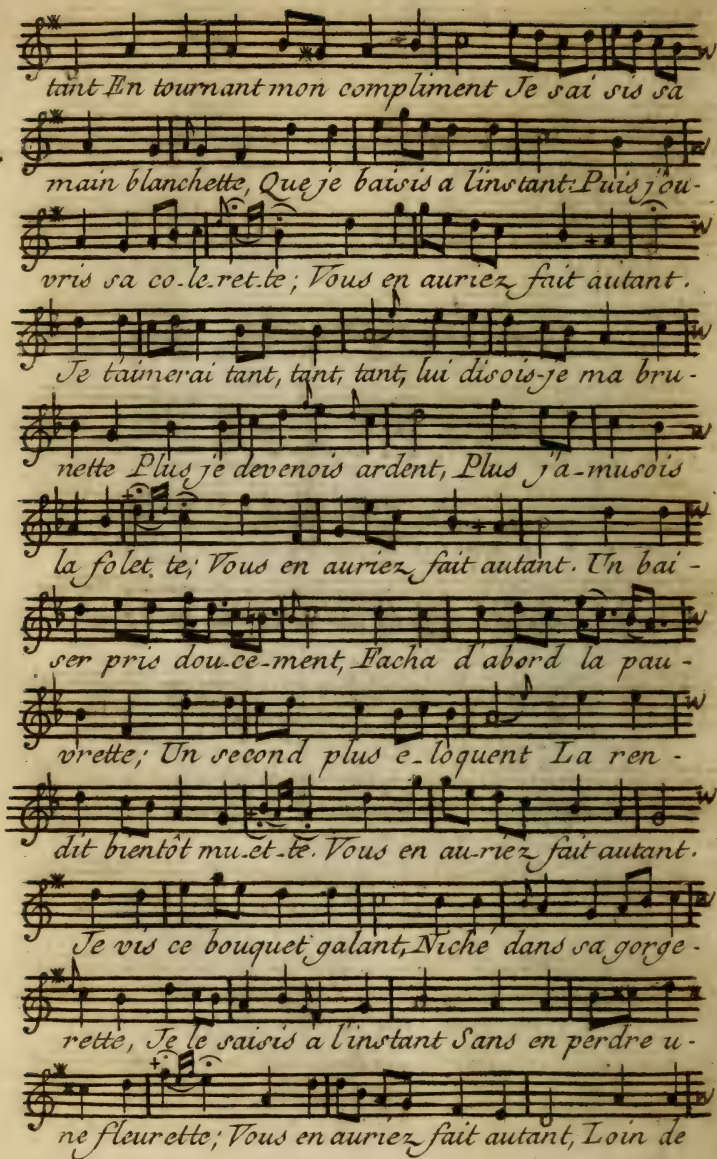 tant En tournant mon compliment Je sai sis sa
main blanchette, Que je baisis a l'instant: Puis j'ou-
vris sa co-le-ret-te; Vous en auriez fait autant.
Je t'aimerai tant, tant, tant, lui disois-je ma bru-
nette Plus je devenois ardent, Plus j'a-musois
la folet te; Vous en auriez fait autant. Un bai-
ser pris dou-ce-ment, Facha d'abord la pau-
vrette; Un second plus e-loquent La ren-
dit bientôt mu-et-te. Vous en au-riez fait autant.
Je vis ce bouquet galant, Niché dans sa gorge-
rette, Je le saisis a l'instant Sans en perdre u-
ne fleurette; Vous en auriez fait autant, Loin de